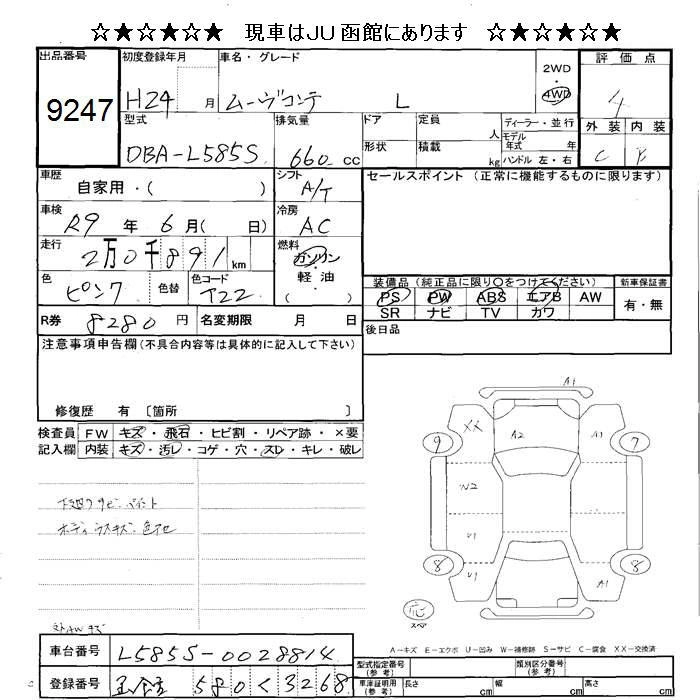 ☆★☆★☆★ 現車はJU函館にあります ☆★☆★☆★
出品番号 初度登録年月 車名・グレード 評価点
9247 H24 月 ムーヴコンテ L 2WD・4WD 4
型式 排気量 ドア 定員 人 ディーラー・並行 外装 内装
DBA-L585S 660 cc 形状 積載 kg モデル年式 年 ハンドル 左・右 C B
車歴 自家用・( ) シフト A/T セールスポイント (正常に機能するものに限ります)
車検 R9 年 6 月( 日) 冷房 AC
走行 2万0千891 km 燃料 ガソリン・軽油・( )
色 ピンク 色替 色コード T22 装備品 (純正品に限り○をつけてください) 新車保証書
PS PW ABS エアB AW 有・無
SR ナビ TV カワ
R券 8280 円 名変期限 月 日 後日品
注意事項申告欄(不具合内容等は具体的に記入して下さい)
修復歴 有 〔箇所 〕
検査員 FW キズ・飛石・ヒビ割・リペア跡・×要
記入欄 内装 キズ・汚レ・コゲ・穴・スレ・キレ・破レ
A1
9 XX A2 7
W2
U1
8 U1 A1 8
下廻りサビ・ペイント
ボディウスキズ・色アセ
応
スペア
AWキズ
A-キズ E-エクボ U-凹み W-補修跡 S-サビ C-腐食 XX-交換済
車台番号 L585S-0028814 型式指定番号(参考) 類別区分番号(参考)
登録番号 580 く 3268 車庫証明用(参考) 長さ cm 幅 cm 高さ cm